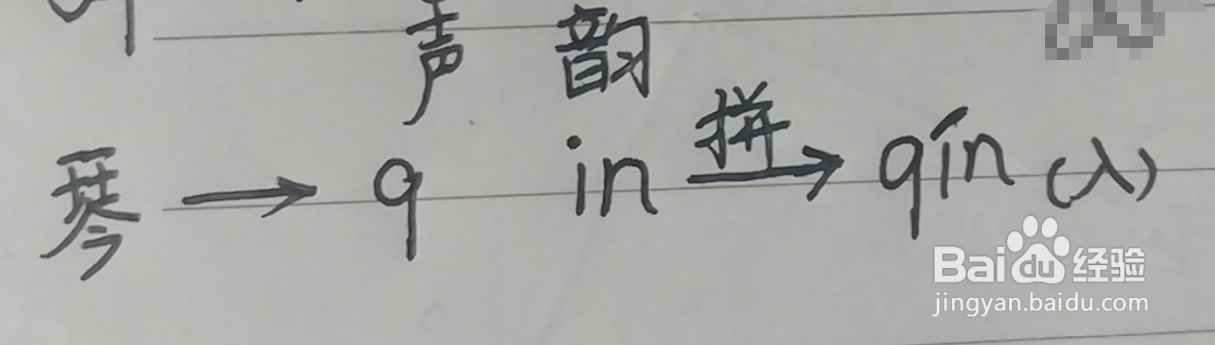 声 韵
琴 → q in 拼→ qín (入)
Bai du 经验
jingyan.baidu.com